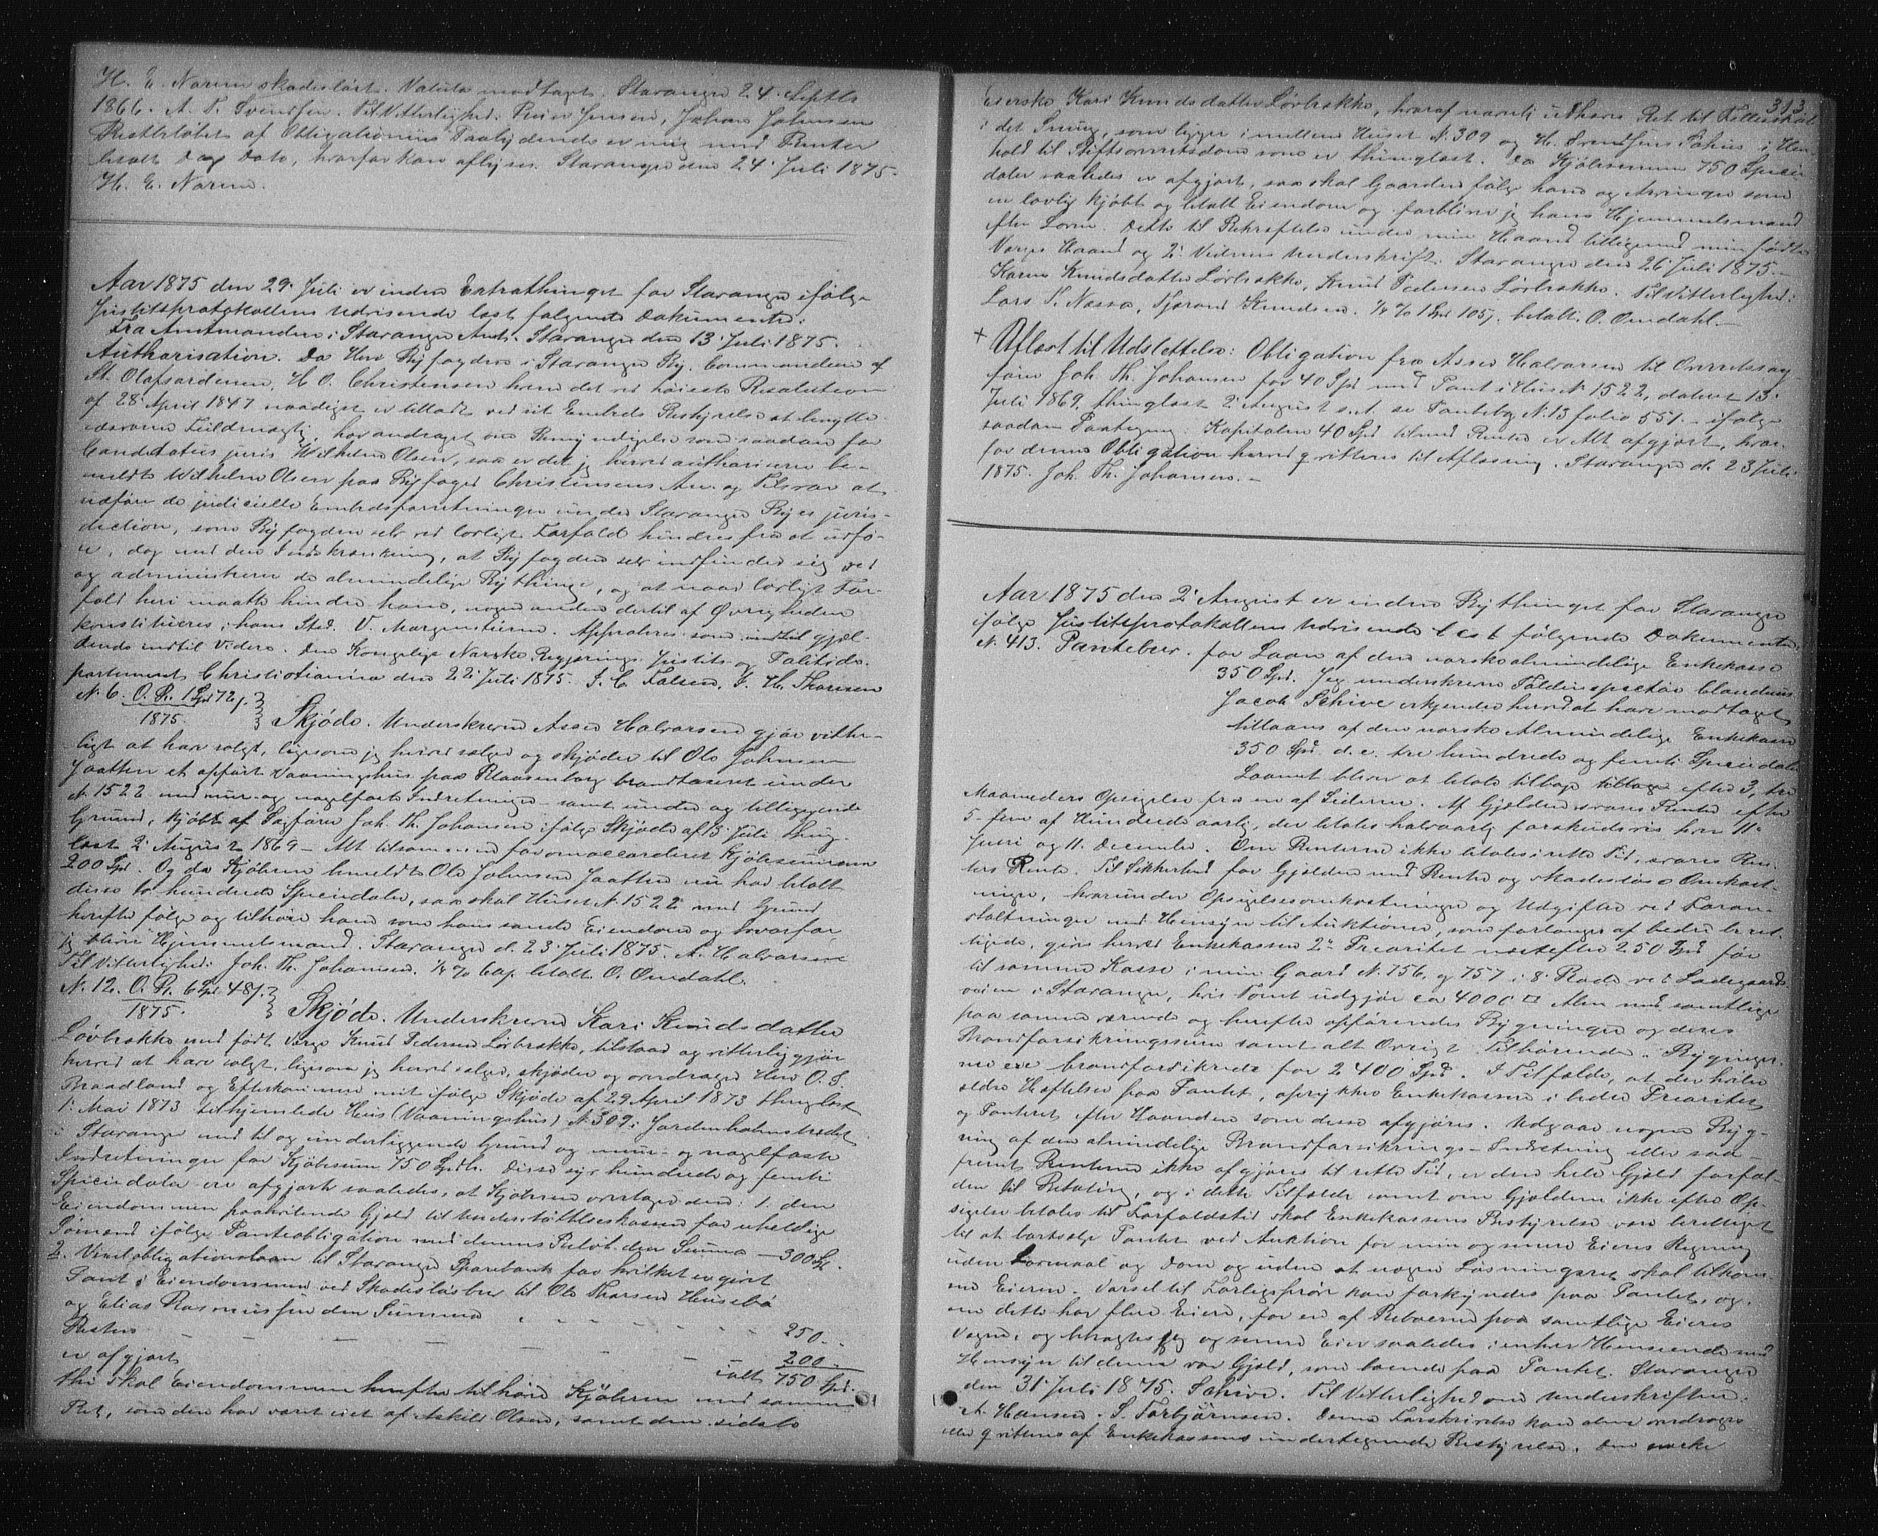 H. E. Narum skadesløst. Valuta modtaget. Stavanger 24. Septb.
1866. A. T. Svendsen. Til Vitterlighed: Peder Jensen, Johan Johnsen
Restbeløbet af Obligationens Paalydende er mig med Renter
betalt Dags Dato, hvorfor kan aflyses. Stavanger den 24' Juli 1875.
H. E. Narum.
Aar 1875 den 29' Juli er inden Extrathinget for Stavanger ifølge
Justitsprotokollens Udvisende læst følgende Dokumenter:
Fra Amtmanden i Stavanger Amt. Stavanger den 13' Juli 1875.
Authorisation. Da Herr Byfogden i Stavanger By, Commandeur af
St. Olafsordenen, H. O. Christensen hvem det ved høieste Resolution
af 28' April 1847 naadigst er tilladt ved sit Embeds Bestyrelse at benytte
edsvoren Fuldmægtig, har andraget om Bemyndigelse som saadan for
Candidatus juris Wilhelm Olsen, saa er det jeg herved authoriserer be-
meldte Wilhelm Olsen paa Byfoged Christensens An- og Tilsvar at
udføre de judicielle Embedsforretninger under Stavanger Byes juris-
diction, som Byfogden selv ved lovligt Forfald hindres fra at udfø-
re, dog med den Indskrænkning, at Byfogden selv indfinder sig ved
og administrerer de almindelige Bythinge, og at naar lovligt For-
fald heri maatte hindre ham, nogen anden dertil af Øvrigheden
konstitueres i hans Sted. V. Morgenstierne. Approberes som indtil gjæl-
dende indtil Videre. Den Kongelige Norske Regjerings Justits- og Politide-
partement Christiania den 22' Juli 1875. I. C. Falsen. G. H. Thoresen
N. 6. O. R. 1 Spd 72 s.
1875. Skjøde. Underskrevne Asser Halvorsen gjør vitter-
ligt at have solgt, ligesom jeg herved sælger og skjøder til Ole Johnsen
Jaatten et opført Vaaningshus paa Blaasenborg brandtaxeret under
N. 1522 med mur- og nagelfaste Indretninger samt under og tilliggende
Grund, kjøbt af Sagfører Joh. Th. Johansen ifølge Skjøde af 13' Juli thing-
læst 2' August 1869 – Alt tilsammen for omaccorderet Kjøbesummen
200 Spd. Og da Kjøberen bemeldte Ole Johnsen Jaatten nu har betalt
disse to hundrede Speciedaler, saa skal Huset N. 1522 med Grund
herefter følge og tilhøre ham som hans sande Eiendom og hvorfor
jeg bliver Hjemmelsmand. Stavanger d. 23' Juli 1875. A. Halvorsen
Til Vitterlighed: Joh. Th. Johansen. ½ % Cap. betalt O. Omdahl.
N. 12. O. R. 6 Spd. 48 s.
1875. Skjøde. Underskrevne Kari Knudsdatter
Løvbrække med født Verge Knud Pedersen Løvbrække, tilstaar og vitterliggjør
herved at have solgt, ligesom jeg herved sælger, skjøder og overdrager Herr O. S.
Braadland og Efterkommere mit ifølge Skjøde af 29 April 1873 thinglæst
1' Mai 1873 tilhjemlede Hus (Vaaningshus) N. 309 i Jordenholmstrædet
i Stavanger med til og underliggende Grund og muur- og nagelfaste
Indretninger for Kjøbesum 750 Spdlr. Disse syv hundrede og femti
Speciedaler ere afgjort saaledes, at Kjøberen overtager den: 1. den
Eiendommen paahvilende Gjæld til Understøttelseskassen for uheldige
Sømænd ifølge Panteobligation med dennes Paalyd. den Summa — 300 Sp.
2. Vexelobligationslaan til Stavanger Sparebank for hvilket er givet
Pant i Eiendommen ved Skadesløsbrev til Ole Thorsen Husebø
og Elias Rasmussen den Summa
250.
Resten
200
er afgjort
ialt 750 Spd.
thi skal Eiendommen herefter tilhøre Kjøberen med samme
Ret, som den har været eiet af Askild Olsen, samt den sidste
313
Eierske Kari Knudsdatter Løvbrække, hvoraf navnlig udhæves Ret til Fællesskab
i det Smug, som ligger imellem Huset N. 309 og H. Svendsens Pakhus i Hen-
hold til Stiftsovretsdom som er thinglæst. Da Kjøbesummen 750 Specie-
daler saaledes er afgjort, saa skal Gaarden følge ham og Arvinger som
en lovlig kjøbt og betalt Eiendom og forbliver jeg hans Hjemmelsmand
efter Loven. Dette til Bekræftelse under min Haand tilligemed min fødte
Verges Haand og 2' Vidners Underskrift. Stavanger den 26' Juli 1875.
Karen Knudsdatter Løvbrække, Knud Pedersen Løvbrække. Til Vitterlighed:
Lars T. Næssa, Tjerand Knudsen. ½ % 1 Spd 105 s. betalt. O. Omdahl.
+ Aflæst til Udslettelse: Obligation fra Asser Halvorsen til Overretssag-
fører Joh. Th. Johansen for 40 Spd med Pant i Hus N. 1522, dateret 13'
Juli 1869, thinglæst 2' August s. A. se Pantebog N. 13 folio 551 – ifølge
saadan Paategning: Kapitalen 40 Spd tilmed Renter er Alt afgjort, hvor-
for denne Obligation herved qvitteres til Aflæsning. Stavanger d. 23 Juli
1875. Joh. Th. Johansen. –
Aar 1875 den 2' August er inden Bythinget for Stavanger
ifølge Justitsprotokollens Udvisende læst følgende Dokumenter:
N. 413. Pantebrev. for Laan af den norske almindelige Enkekasse
350 Spd. Jeg underskrevne Toldinspektør Claudius
Jacob Schive erkjender herved at have modtaget
tillaans af den norske Almindelige Enkekasse
350 Spd. d. e. tre hundrede og femti Speciedaler
Laanet bliver at betale tilbage tilbage efter 3, tre
Maaneders Opsigelse fra en af Siderne. Af Gjælden svares Renter efter
5 – fem af Hundrede aarlig, der betales halvaarlig forskudsvis hver 11'
Juni og 11. December. Om Renterne ikke betales i rette Tid, svares Ren-
ters Rente. Til Sikkerhed for Gjælden med Renter og skadesløse Omkost-
ninger, hvorunder Opsigelsesomkostninger og Udgifter ved Foran-
staltninger med Hensyn til Auktioner, som forlanges af bedre beret-
tigede, gives herved Enkekassen 2den Prioritet næstefter 250 Spd før
til samme Kasse i min Gaard N. 756, og 757 i 8' Rode ved Ladegaards-
veien i Stavanger, hvis Tomt udgjør ca 4000 □ Alen med samtlige
paa samme værende og herefter opførendes Bygninger og deres
Brandforsikringssum samt alt Øvrigt Tilhørende. Bygninger-
ne ere brandforsikrede for 2400 Spd. I Tilfælde, at der hviler
ældre Heftelser paa Pantet, oprykker Enkekassen i ledig Prioritet
og Panteret efter Haanden som disse afgjøres. Udgaar nogen Byg-
ning af den almindelige Brandforsikrings-Indretning eller saa-
fremt Renterne ikke afgjøres til rette Tid, er den hele Gjæld forfal-
den til Betaling, og i dette Tilfælde samt om Gjælden ikke efter Op-
sigelse betales til Forfaldstid skal Enkekassens Bestyrelse være berettiget
til at bortsælge Pantet ved Auktion for min og senere Eieres Regning
uden Lovmaal og Dom og uden at nogen Løsningsret skal tilkom-
me Eieren. Varsel til Forligsprøve kan forkyndes paa Pantet, og,
om dette har flere Eiere, for en af Beboerne paa samtlige Eieres
Vegne, og betragtes jeg og senere Eier saaledes i enhver Henseende med
Hensyn til denne vor Gjæld, som boende paa Pantet. Stavanger
den 31' Juli 1875. Schive. Til Vitterlighed om Underskriften:
A. Hansen. S. Torbjørnsen. Denne Forskrivelse kan alene overdrages
eller qvitteres af Enkekassens undertegnende Bestyrelse. Den norske